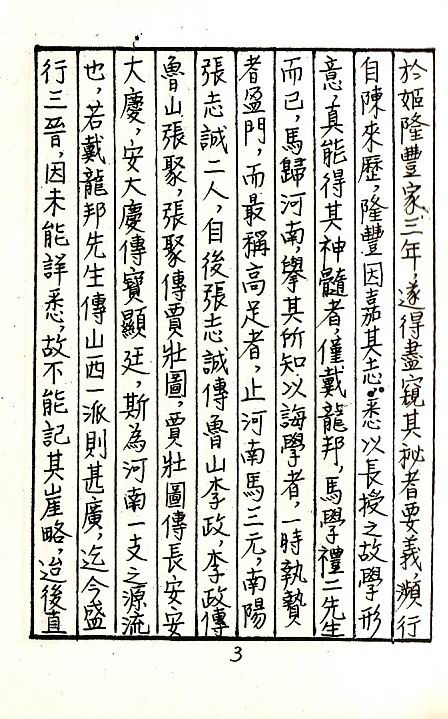 於姬隆豐家三年，遂得盡窺其秘者要義，瀕行
自陳來歷，隆豐因嘉其志，悉以長授之故學形
意，真能得其神髓者，僅戴龍邦，馬學禮二先生
而已，馬歸河南，舉其所知以誨學者，一時執贄
者盈門，而最稱高足者，止河南馬三元，南陽
張志誠二人，自後張志誠傳魯山李政，李政傳
魯山張聚，張聚傳賈壯圖，賈壯圖傳長安安
大慶，安大慶傳寶顯廷，斯為河南一支之源流
也，若戴龍邦先生傳山西一派則甚廣，迄今盛
行三晉，因未能詳悉，故不能記其崖略，迨後直
3